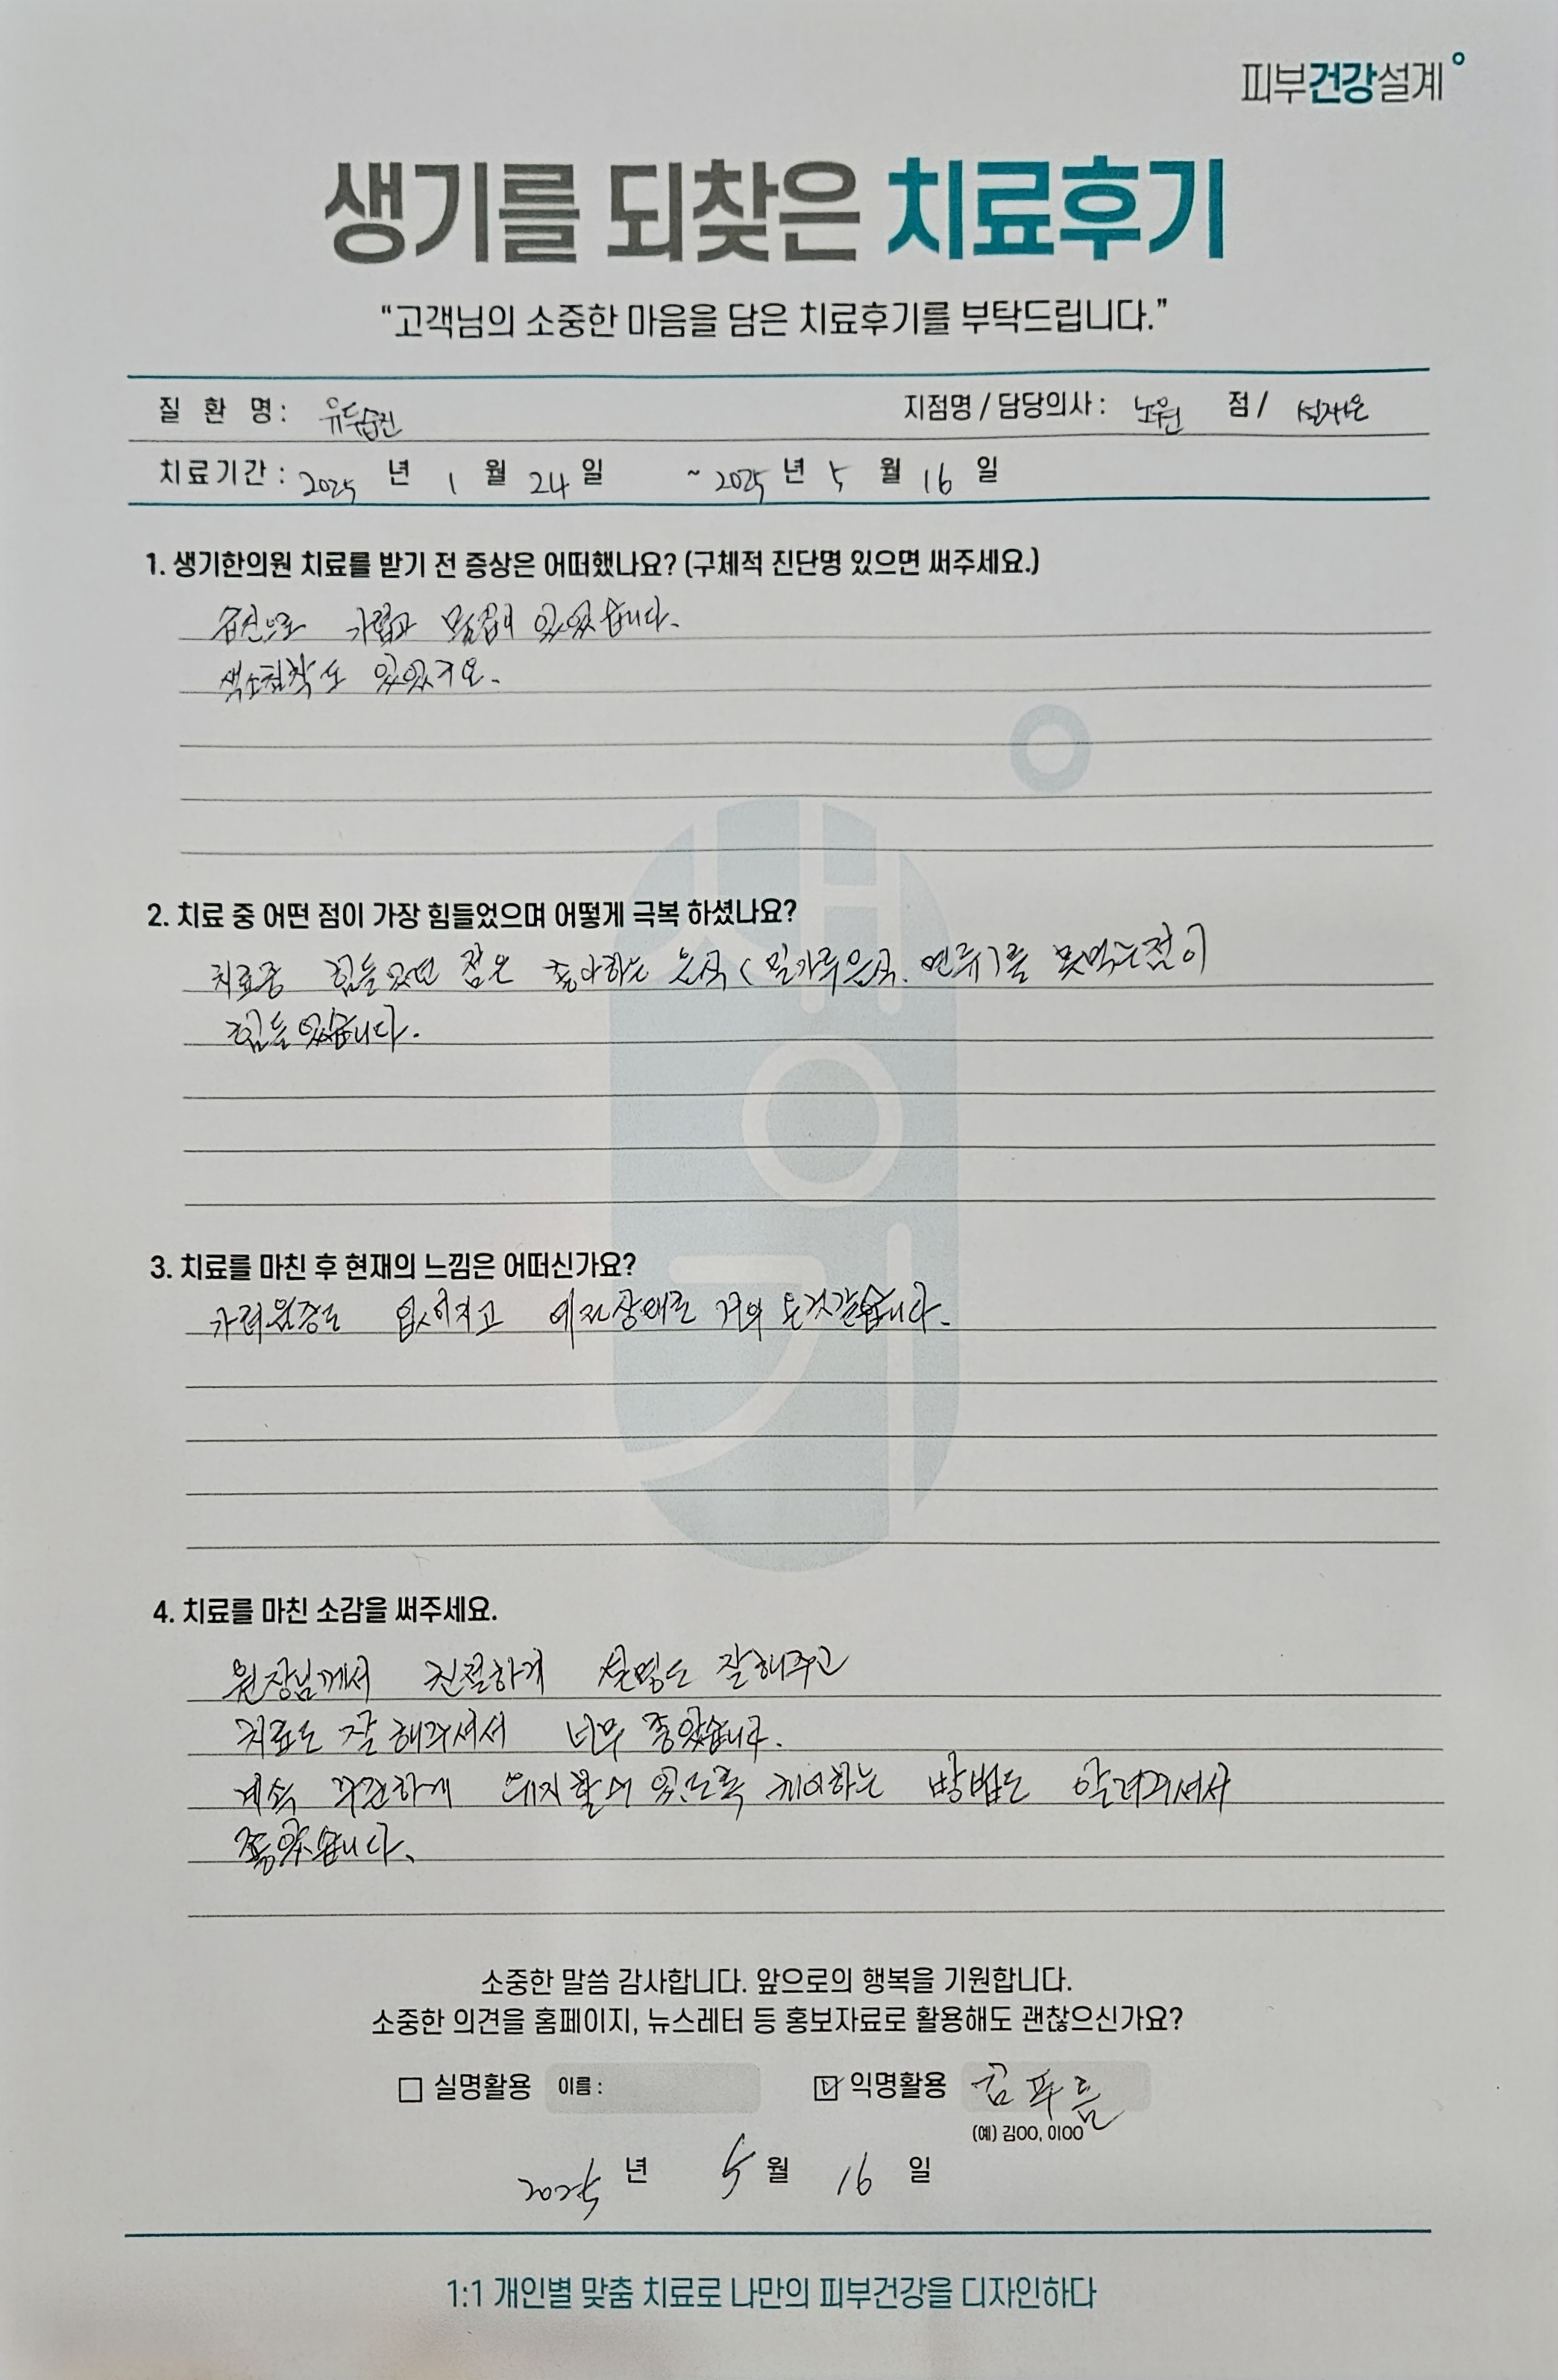 피부건강설계
생기를 되찾은 치료후기
“고객님의 소중한 마음을 담은 치료후기를 부탁드립니다.”
질 환 명 : 유두습진 지점명 / 담당의사 : 노원 점 /
치료기간 : 2025 년 1 월 24 일 ~ 2025 년 5 월 16 일
1. 생기한의원 치료를 받기 전 증상은 어떠했나요? (구체적 진단명 있으면 써주세요.)
습진으로 가렵고 있었습니다.
색소침착도 있었지요.
2. 치료 중 어떤 점이 가장 힘들었으며 어떻게 극복 하셨나요?
치료중 힘들었던 점은 좋아하는 음식 (밀가루음식. 면류)를 못먹는점이
힘들었습니다.
3. 치료를 마친 후 현재의 느낌은 어떠신가요?
가려움증도 없어지고 예전상태로 거의 온것같습니다.
4. 치료를 마친 소감을 써주세요.
원장님께서 친절하게 설명도 잘해주고
치료도 잘 해주셔서 너무 좋았습니다.
계속 꾸준하게 유지할수 있도록 케어하는 방법도 알려주셔서
좋았습니다.
소중한 말씀 감사합니다. 앞으로의 행복을 기원합니다.
소중한 의견을 홈페이지, 뉴스레터 등 홍보자료로 활용해도 괜찮으신가요?
실명활용 이름 : 익명활용 김푸름
(예) 김OO, 이OO
2025 년 5 월 16 일
1:1 개인별 맞춤 치료로 나만의 피부건강을 디자인하다